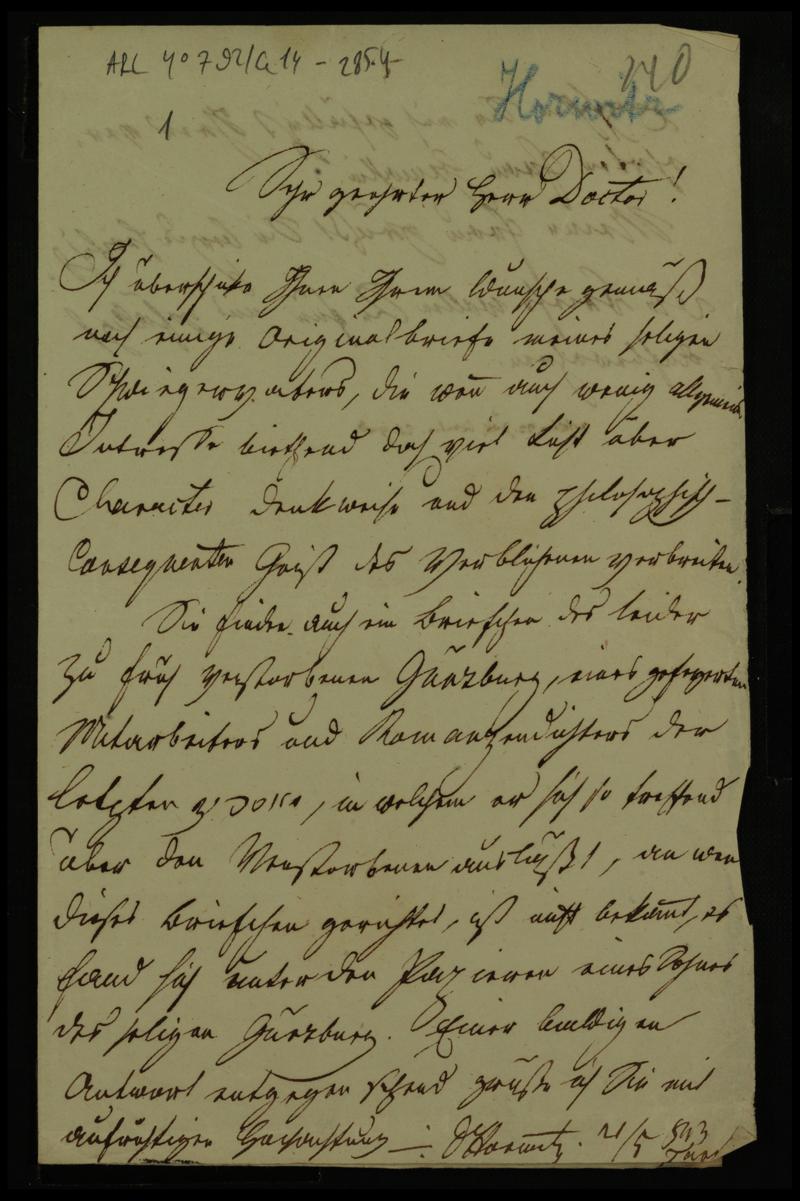 ARC 4º 792/G 14 – 285.4
Horwitz
1
Sehr geehrter Herr Doctor!
Ich überschicke Ihnen Ihrem Wunsche gemäß
noch einige Originalbriefe meines seligen
Schwiegervaters, die wenn auch wenig allgemeines
Interesse biethend doch viel Licht über
Character Denkweise und den philosophisch-
Consequenten Geist des Verblichenen verbreiten.
Sie finden auch ein Briefchen des leider
zu früh verstorbenen Günzburg, eines gefeyerten
Mitarbeiters und Romanzendichters der
letzten, in welchem er sich so treffend
über den Verstorbenen ausläßt, an wen
dieses Briefchen gerichtet, ist nicht bekannt, es
fand sich unter den Papieren eines Sohnes
des seligen Günzburg. Einer baldigen
Antwort entgegen sehend grüße ich Sie mit
aufrichtiger Hochachtung –: Horwitz. 21/5 893